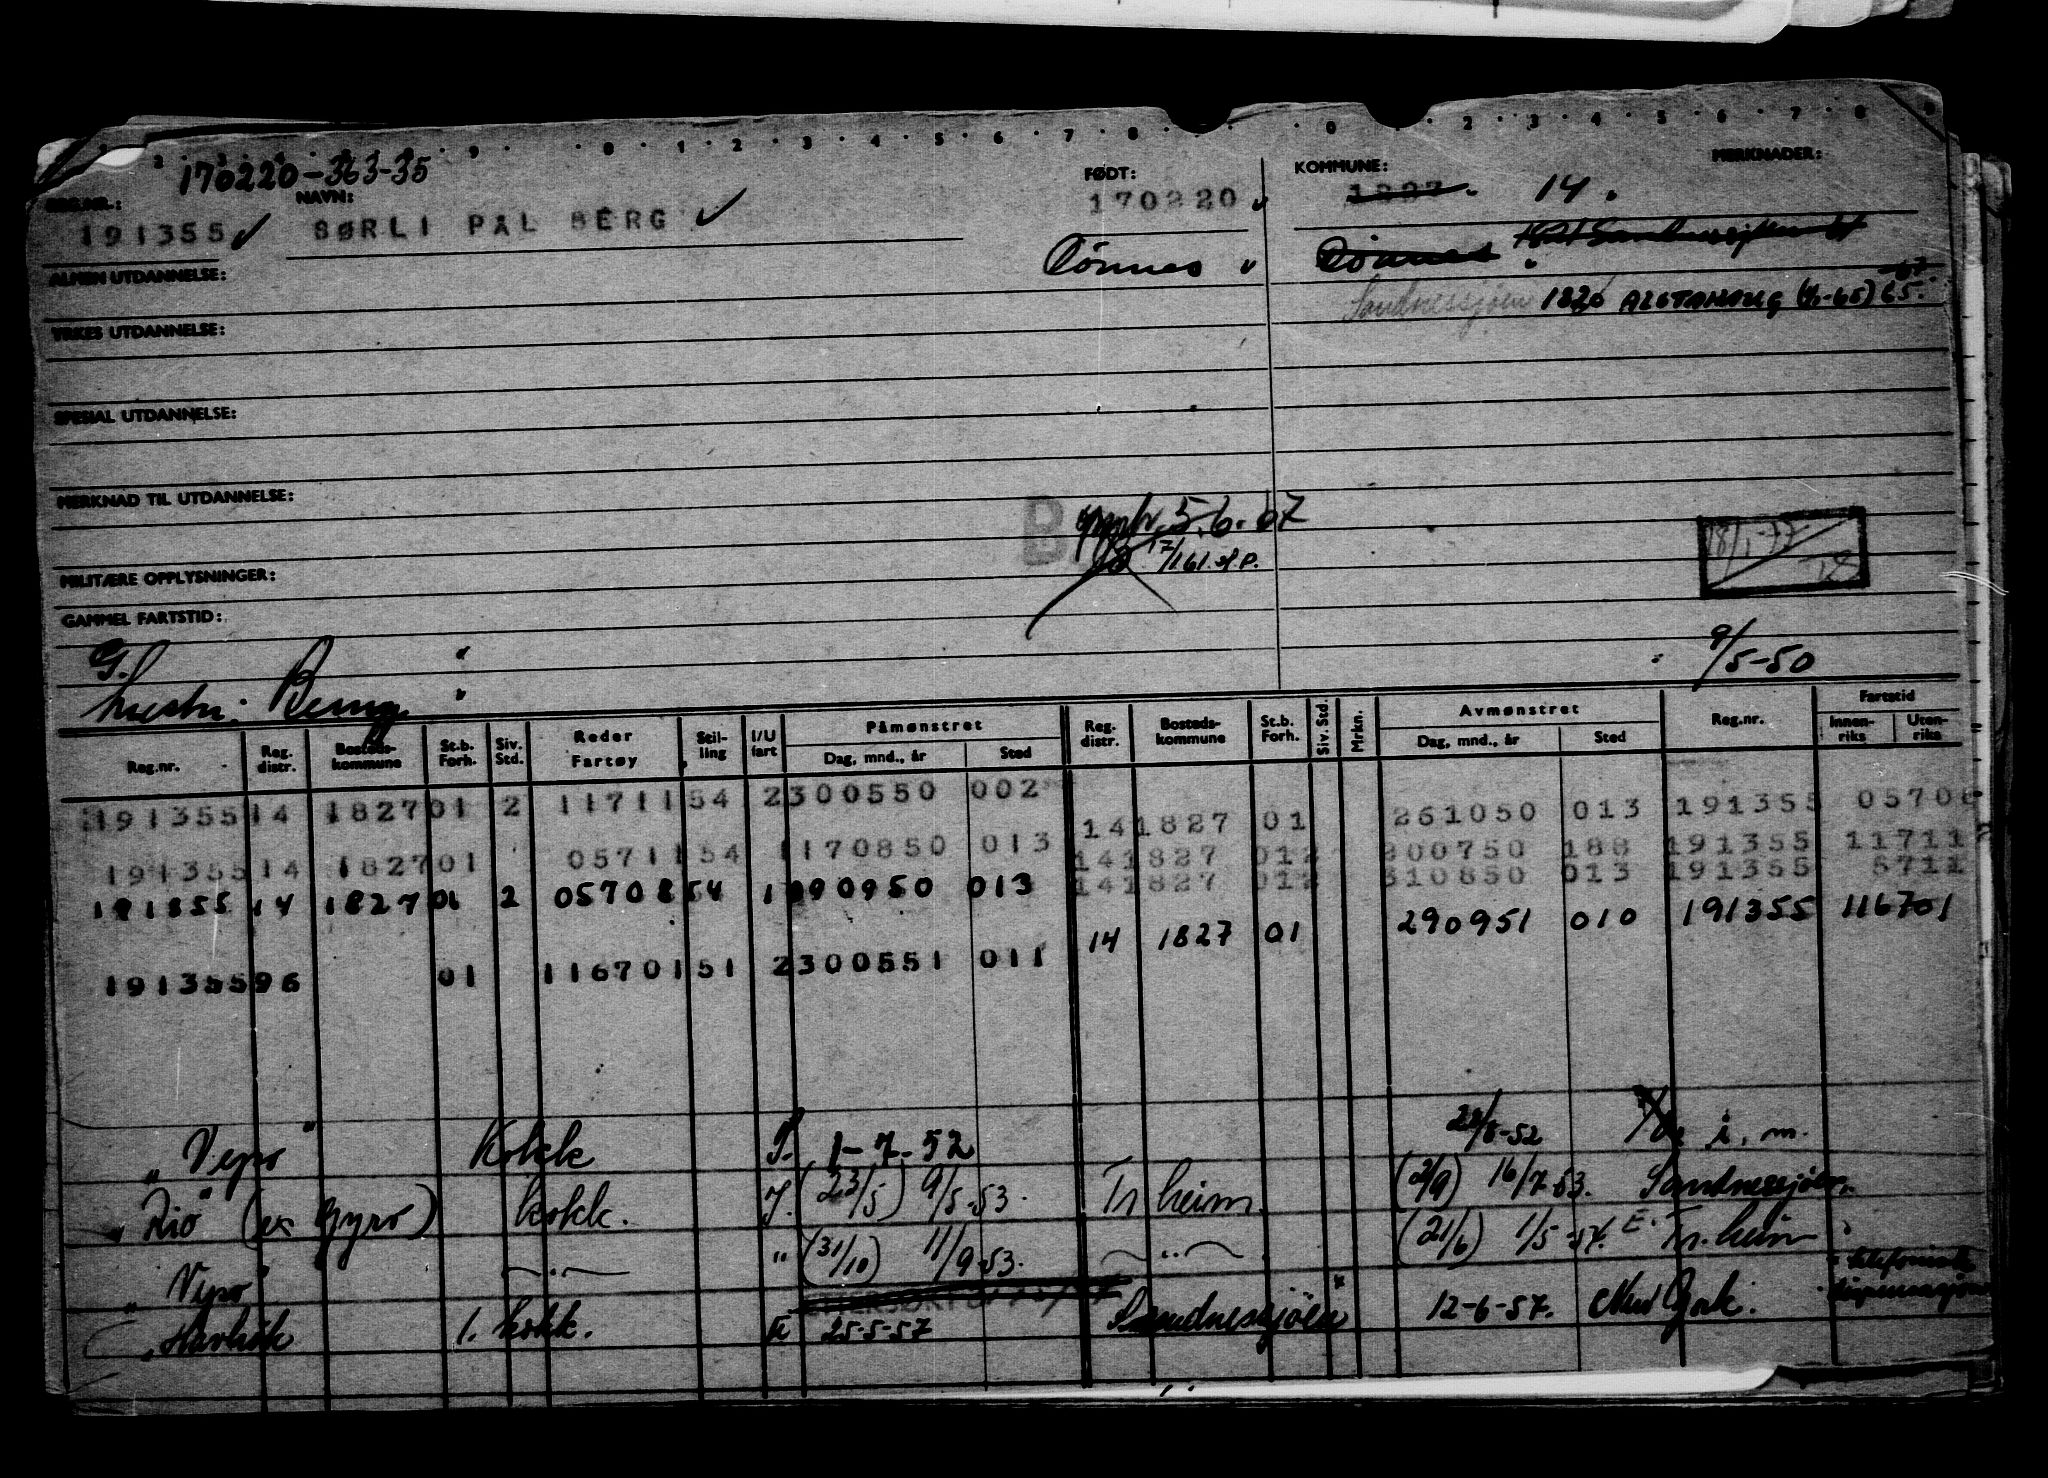 170220-363-35
REG.NR.: NAVN: FØDT: KOMMUNE: MERKNADER:
191355 SØRLI PÅL BERG 170220 1827. 14.
Dönnes Dönnes
ALMEN UTDANNELSE:
Sandnessjøen 1820 ALSTAHAUG (1/1-65) 65.
YRKES UTDANNELSE:
SPESIAL UTDANNELSE:
MERKNAD TIL UTDANNELSE:
B 5.6.67
17/1 61. H.P.
18/1-77
MILITÆRE OPPLYSNINGER:
GAMMEL FARTSTID:
G. 9/5-50
hustru: Berg
Påmønstret Avmønstret Fartstid
Reg.nr. Reg. distr. Bosteds- kommune St.b. Forh. Siv. Std. Reder Fartøy Stil- ling I/U fart Dag, mnd., år Sted Reg. distr. Bosteds- kommune St.b. Forh. Siv. Std. Mrkn. Dag, mnd., år Sted Reg.nr. Innen- riks Uten- riks
191355 14 1827 01 2 11711 54 2 300550 002 14 1827 01 261050 013 191355 05708
191355 14 1827 01 05711 54 1 170850 013 14 1827 01 2 300750 188 191355 11711
14 1827 01 2 310850 013 191355 5711
191355 14 1827 01 2 05708 54 1 090950 013 14 1827 01 290951 010 191355 116701
191355 96 01 116701 51 2 300551 011
"Vepro" Kokk I. 1-7-52 28/8-52 i.m.
"Rio" (ex Gyro) kokk. I. (23/5) 9/5-53. Tr.heim. (2/9) 16/7-53. Sandnessjöen.
"Vepro" -"- " (31/10) 11/9-53. -"- (21/6) 1/5-54. E. Tr.heim
Havlsök 1. kokk. U 25-5-57 Sandnessjöen 12-6-57. New York. telefonisk dispensasjon